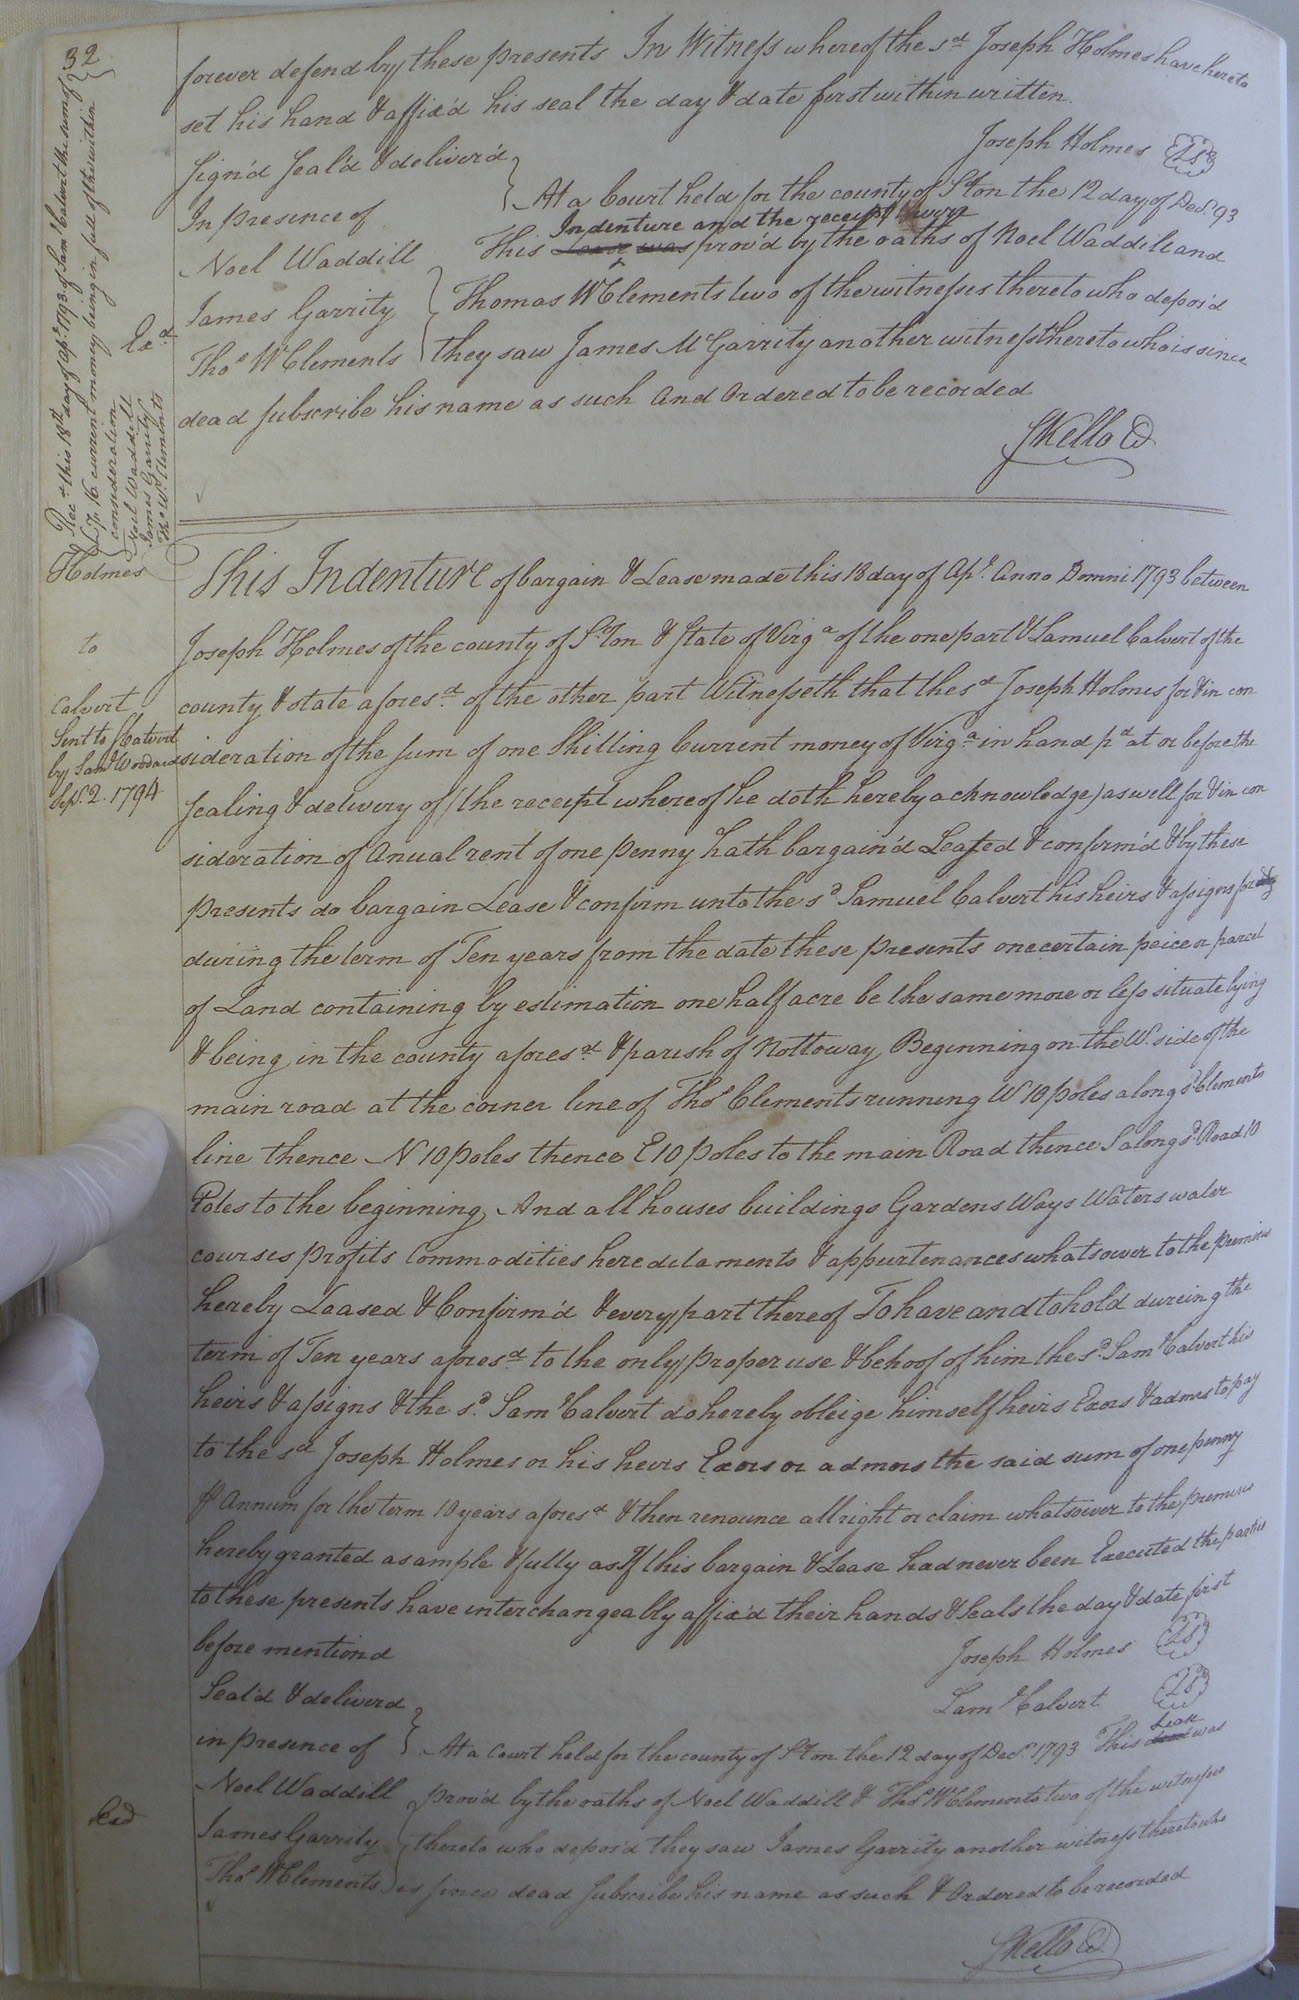 32
forever defend by these presents In Witness whereof the sd Joseph Holmes have hereto
set his hand & affix'd his seal the day & date first within written.
Joseph Holmes LS
Sign'd Seal'd & deliver'd
In presence of
Noel Waddill
James Garrity
Thos W Clements
At a Court held for the county of S.ton the 12 day of Decr 93
Indenture and the receipt were
This Lease was prov'd by the oaths of Noel Waddill and
Thomas W Clements two of the witnesses thereto who depos'd
they saw James McGarrity another witness thereto who is since
dead subscribe his name as such And Ordered to be recorded
SKello C
Exd
Recd this 18th day of apl 1793 of Saml Calvert the sum of
£7.16 current money being in full of the within
consideration
Noel Waddill
James Garrity
Thos W Clements
Holmes
to
Calvert
Sent to S Calvert
by Saml Woodard
Sepr 2. 1794
This Indenture of bargain & Lease made this 18 day of Apl Anno Domni 1793 between
Joseph Holmes of the county of S.ton & State of Virga of the one part & Samuel Calvert of the
county & state aforesd of the other part Witnesseth that the sd Joseph Holmes for & in con
sideration of the sum of one Shilling Current money of Virga in hand pd at or before the
sealing & delivery of (the receipt whereof he doth hereby acknowledge) as well for & in con
sideration of Anual rent of one penny hath bargain'd Leased & confirm'd & by these
presents do bargain Lease & confirm unto the sd Samuel Calvert his heirs & assigns for
during the term of Ten years from the date these presents one certain peice or parcel
of Land containing by estimation one half acre be the same more or less situate lying
& being in the county aforesd & parish of Nottoway Beginning on the W. side of the
main road at the corner line of Thos Clements running W 10 poles along sd Clements
line thence N 10 poles thence E 10 poles to the main Road thence S along sd Road 10
Poles to the beginning, And all houses buildings Gardens Ways Waters water
courses profits Commodities hereditaments & appurtenances whatsoever to the premises
hereby Leased & Confirm'd & every part thereof To have and to hold dureing the
term of Ten years aforesd to the only proper use & behoof of him the sd Saml Calvert his
heirs & assigns & the sd Saml Calvert do hereby obleige himself heirs Exors & admrs to pay
to the sd Joseph Holmes or his heirs Exors or admors the said sum of one penny
⅌ Annum for the term 10 years aforesd & then renounce all right or claim whatsoever to the premises
hereby granted as ample & fully as If this bargain & Lease had never been Executed the parties
to these presents have interchangeably affix'd their hands & Seals the day & date first
before mentiond
Joseph Holmes LS
Saml Calvert LS
Seal'd & deliverd
in presence of
Noel Waddill
James Garrity
Thos W Clements
At a Court held for the county of S.ton the 12 day of Decr 1793 This
Lease
was
prov'd by the oaths of Noel Waddill & Thos W Clements two of the witnesses
thereto who depos'd they saw James Garrity another witness thereto who
is since dead subscribe his name as such & Ordered to be recorded
SKello C